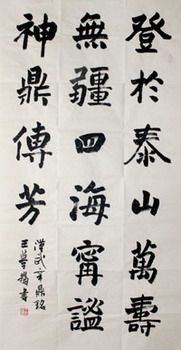 登於泰山萬壽
無疆四海寧謐
神鼎傳芳
漢武帝鼎銘